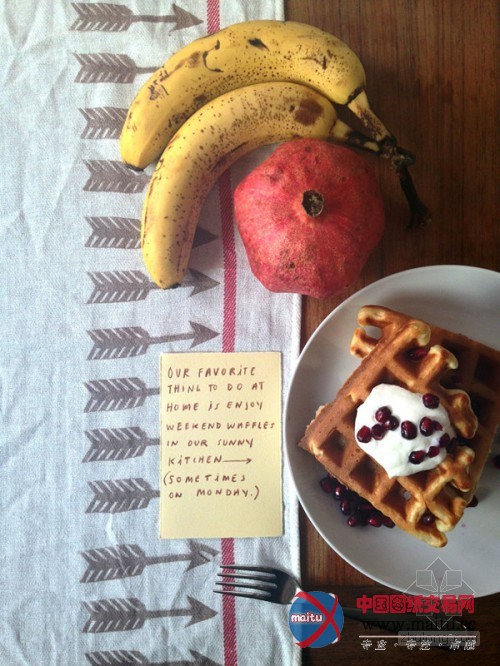 OUR FAVORITE
THING TO DO AT
HOME IS ENJOY
WEEKEND WAFFLES
IN OUR SUNNY
KITCHEN →
(SOMETIMES
ON MONDAY.)
maitu
中国图纸交易网
www.maitu.cc